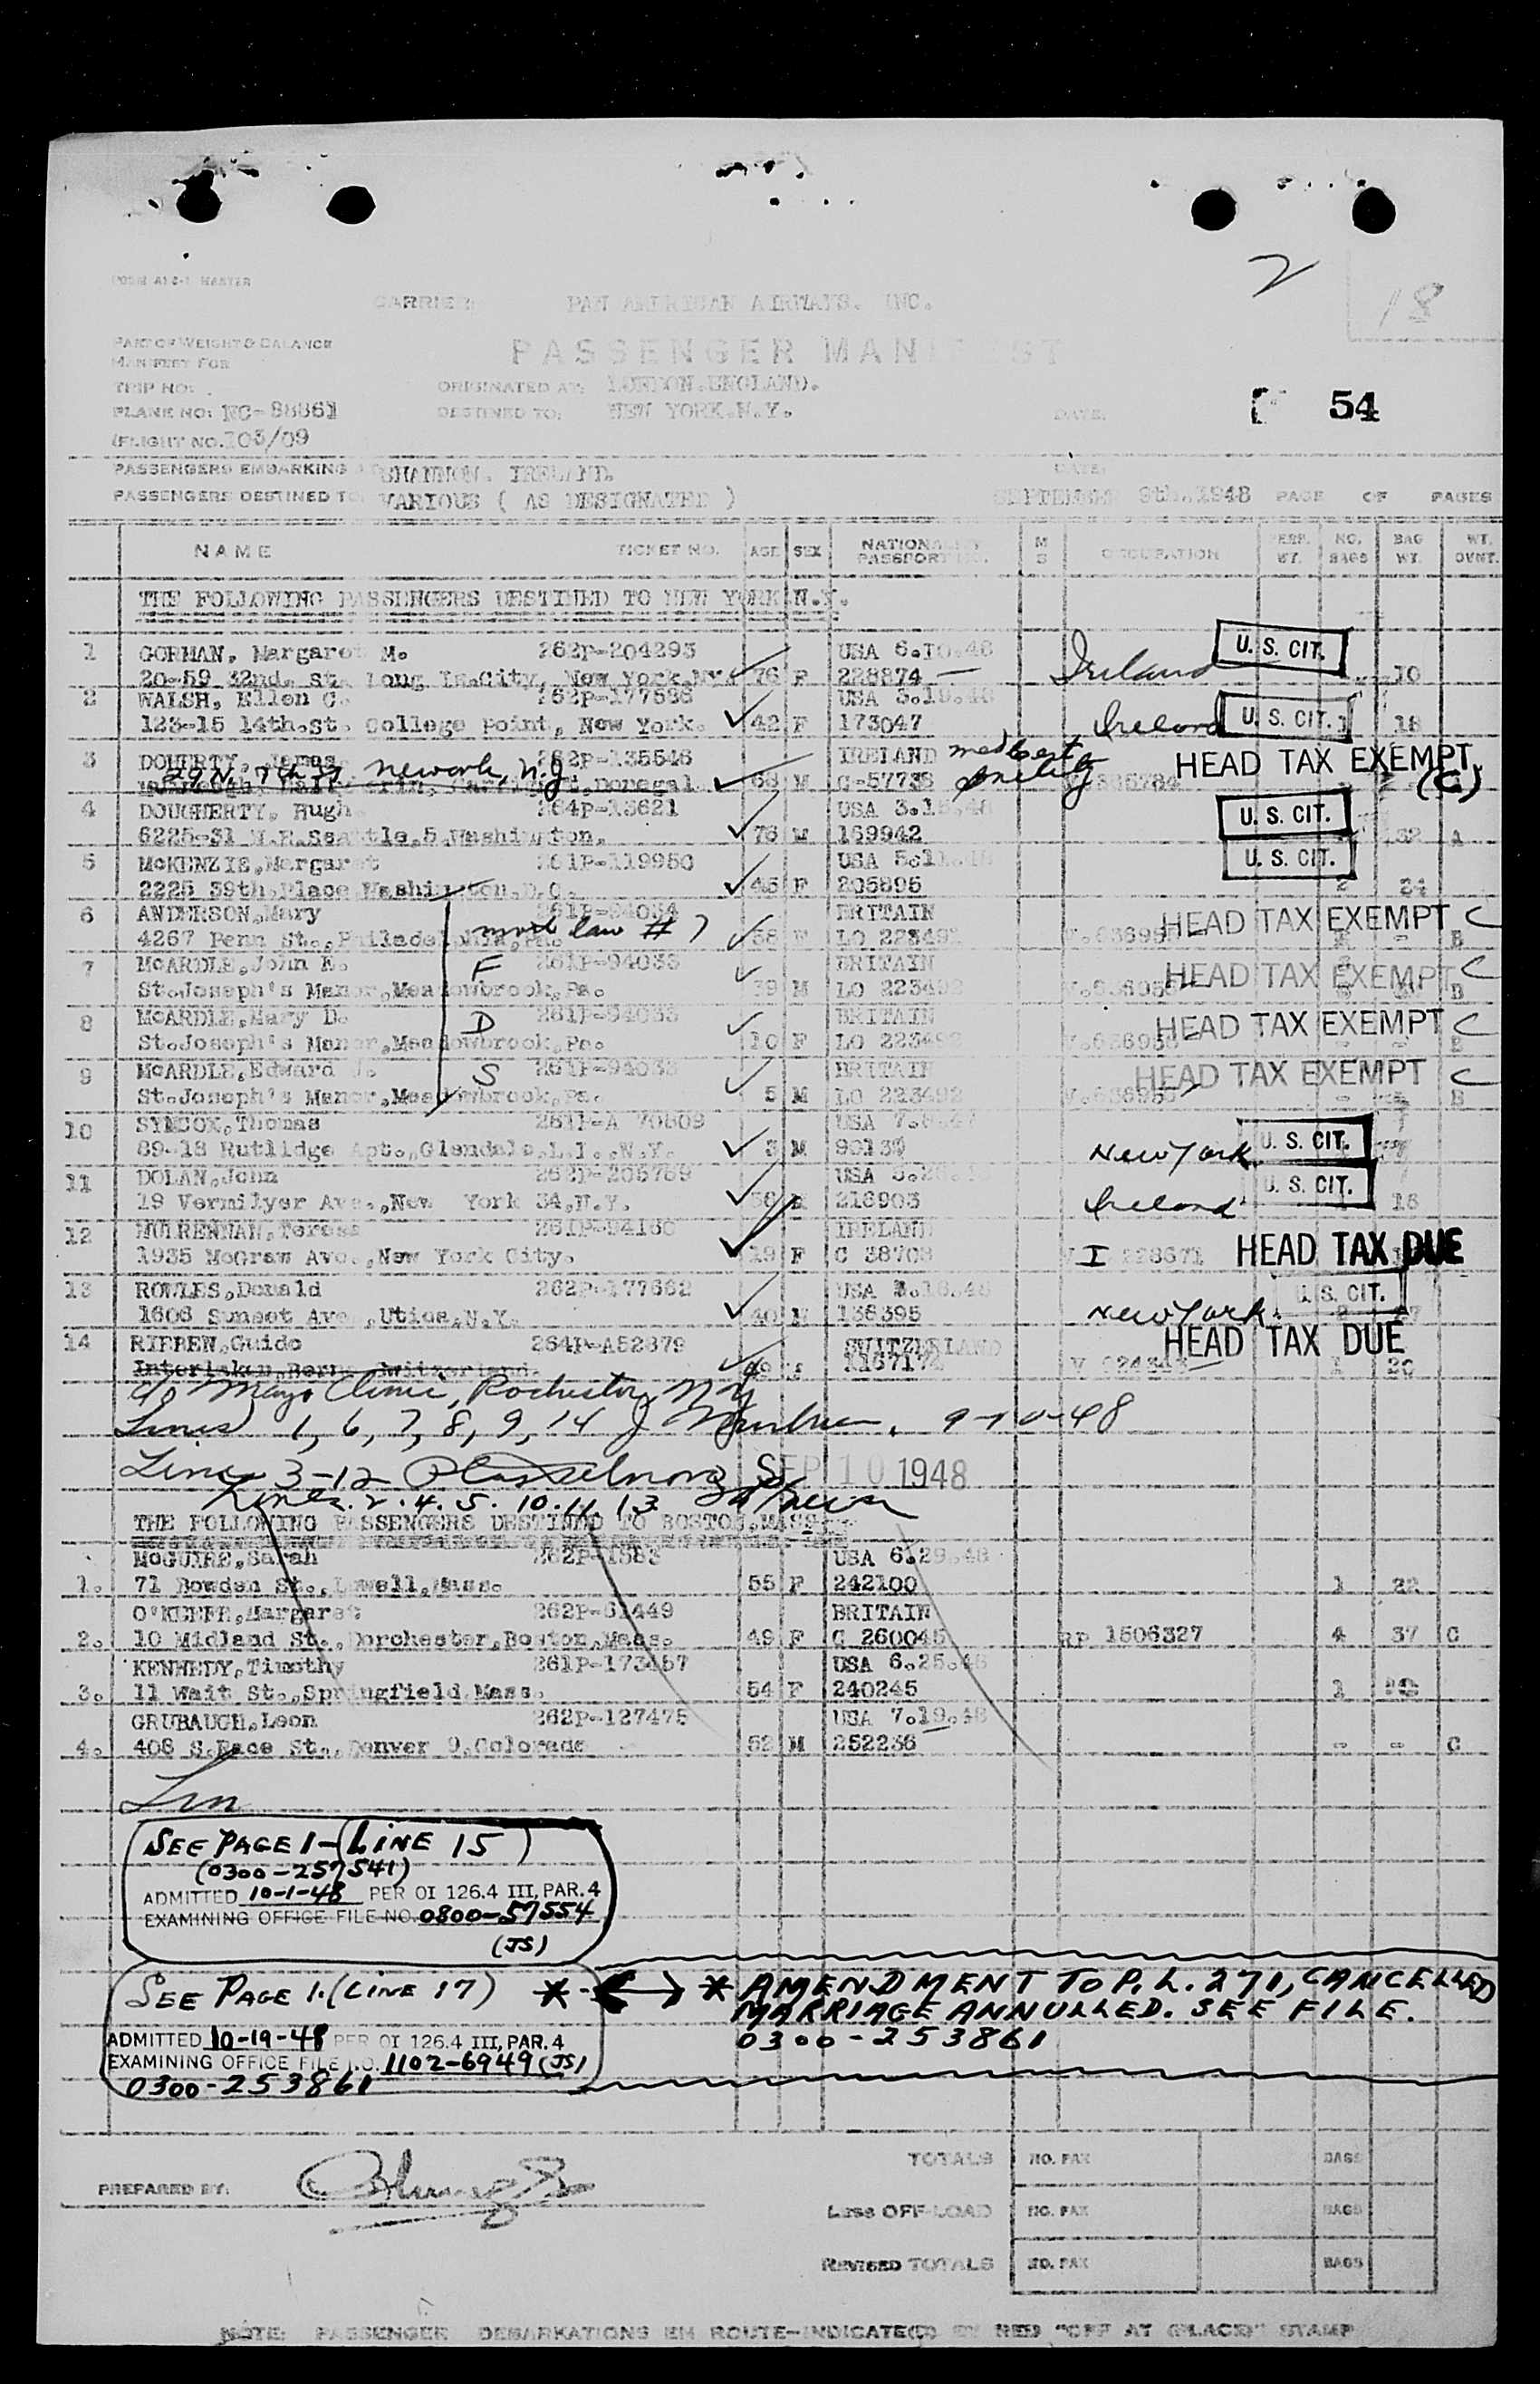 2
18
FORM AIC-1 MASTER
CARRIER: PAN AMERICAN AIRWAYS. INC.
PART OF WEIGHT & BALANCE
MANIFEST FOR
PASSENGER MANIFEST
TRIP NO:
ORIGINATED AT: LONDON.ENGLAND.
PLANE NO: NC-88861
DESTINED TO: NEW YORK.N.Y.
DATE:
54
FLIGHT NO. 103/09
PASSENGERS EMBARKING SHANNON. IRELAND. DATE:
PASSENGERS DESTINED TO VARIOUS ( AS DESIGNATED ) SEPTEMBER 9th.1948 PAGE OF PAGES
NAME TICKET NO. AGE SEX NATIONALITY PASSPORT NO. M S OCCUPATION PERP. WT. NO. BAGS BAG WT. WT. OVNT.
THE FOLLOWING PASSENGERS DESTINED TO NEW YORK N.Y.
1 GORMAN, Margaret M. 262P-204293 USA 6.10.48 U.S. CIT.
20-59 32nd. St. Long Is.City, New York.NY. 76 F 228874 Ireland 10
2 WALSH, Ellen C. 262P-177586 USA 3.19.48
123-15 14th.St. College Point, New York. 42 F 173047 Ireland U.S. CIT. 18
3 DOHERTY, James 262P-135546 IRELAND med cert HEAD TAX EXEMPT.
29 N. 7th St Newark, N.J. Donegal. 68 M C-57738 senility (C)
4 DOUGHERTY, Hugh 264P-13621 USA 3.15.48 U.S. CIT.
6225-31 N.E.Seattle,5,Washington. 76 M 169942 32 A
5 McKENZIE,Margaret 261P-119950 USA U.S. CIT.
2225 39th.Place Washington.D.C. 45 F 205895 2 24
6 ANDERSON,Mary 261P-94034 BRITAIN HEAD TAX EXEMPT C
4267 Penn St.,Philadelphia,Pa. mo in law # 7 58 F LO 223492 B
7 McARDLE,John E. F 261P-94033 BRITAIN HEAD TAX EXEMPT C
St.Joseph's Manor,Meadowbrook,Pa. 39 M LO 223492 B
8 McARDLE,Mary D. D 261P-94033 BRITAIN HEAD TAX EXEMPT C
St.Joseph's Manor,Meadowbrook,Pa. 10 F LO 223492 B
9 McARDLE,Edward J. S 261P-94033 BRITAIN HEAD TAX EXEMPT C
St.Joseph's Manor,Meadowbrook,Pa. 5 M LO 223492 B
10 SYMCOX,Thomas 261P-A 70809 USA U.S. CIT.
89-18 Rutlidge Apt.,Glendale.L.I.,N.Y. 3 M New York
11 DOLAN,John 262P-205789 USA U.S. CIT.
19 Vermilyer Ave.,New York 34,N.Y. 56 M 216903 Ireland 18
12 MULRENNAN,Teresa 261P-94160 IRELAND
1935 McGraw Ave.,New York City. 19 F C 38708 I 228671 HEAD TAX DUE
13 ROWLES,Donald 262P-177662 USA U.S. CIT.
1606 Sunset Ave.,Utica,N.Y. 40 M 136395 New York 2 27
14 RIEBEN,Guido 264P-A52879 SWITZERLAND HEAD TAX DUE
Interlaken,Berne,Switzerland. 49 1 20
c/o Mayo Clinic, Rochester, N Y
Lines 1, 6, 7, 8, 9, 14 9-10-48
Lines 3-12 SEP 10 1948
Lines. 2. 4. 5. 10. 11. 13
THE FOLLOWING PASSENGERS DESTINED TO BOSTON,MASS.
McGUIRE,Sarah 262P-1583 USA 6.29.48
1. 71 Bowden St.,Lowell,Mass. 55 F 242100 1 22
O'KEEFE,Margaret 262P-61449 BRITAIN
2. 10 Midland St.,Dorchester,Boston,Mass. 49 F C 260045 RP 1506327 4 37 C
KENNEDY,Timothy 261P-173457 USA 6.25.48
3. 11 Wait St.,Springfield.Mass. 54 F 240245 1
GRUBAUGH,Leon 262P-127475 USA 7.19.48
4. 408 S.Race St.,Denver 9,Colorado 52 M 252236 - - C
Lin
SEE PAGE 1-(LINE 15)
(0300-257541)
ADMITTED 10-1-48 PER OI 126.4 III, PAR. 4
EXAMINING OFFICE FILE NO. 0800-57554
(JS)
SEE PAGE 1.(LINE 17) * ↔ * AMENDMENT TO P.L. 271, CANCELLED
MARRIAGE ANNULLED. SEE FILE.
0300-253861
ADMITTED 10-19-48 PER OI 126.4 III, PAR. 4
EXAMINING OFFICE FILE NO. 1102-6949 (JS)
0300-253861
TOTALS NO. PAX BAGS
PREPARED BY:
Less OFF-LOAD NO. PAX BAGS
REVISED TOTALS NO. PAX BAGS
NOTE: PASSENGER DEBARKATIONS EN ROUTE-INDICATE(D) BY RED "OFF AT (PLACE)" STAMP